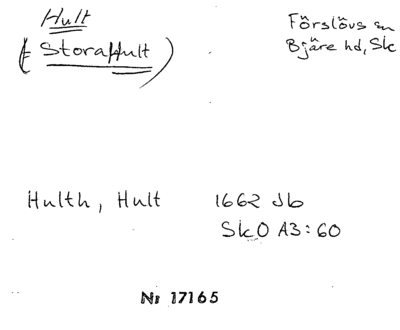 Hult
(Storahult)
Förslövs sn
Bjäre hd, Sk
Hulth, Hult
1662 Jb
SkO A3:60
Nr 17165